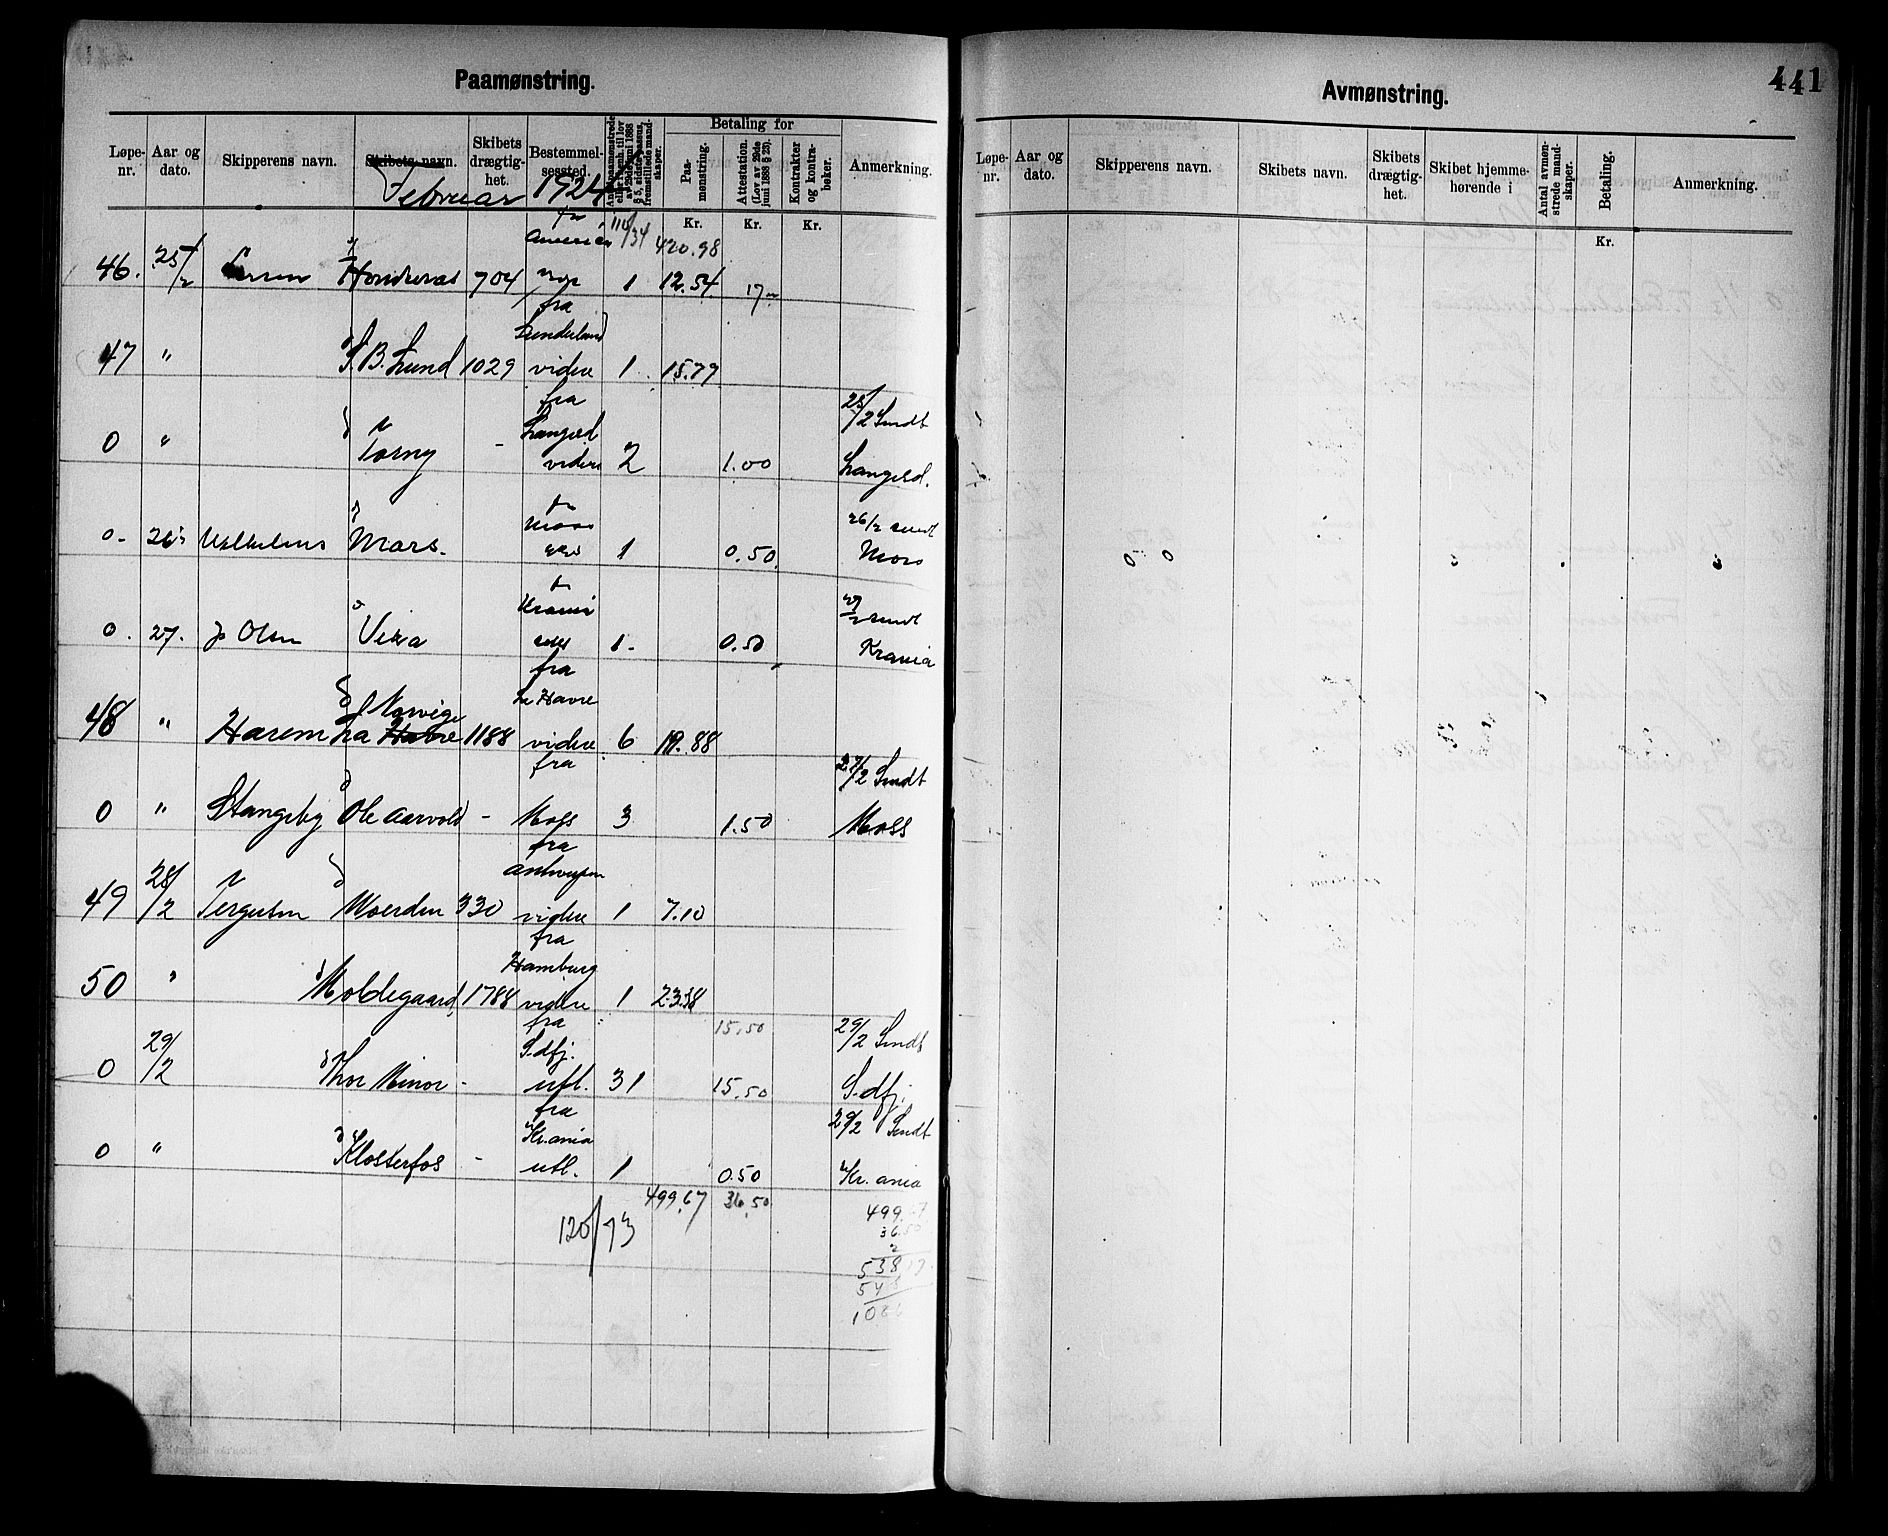 Paamønstring.
Løpe-nr. Aar og dato. Skipperens navn. Skibets navn. Skibets drægtig-het. Bestemmel-sessted. Betaling for Paa-mønstring. Attestation. (Lov av 29de juni 1888 § 23). Kontrakter og kontra-bøker. Anmerkning.
Februar 1924
Kr. Kr. Kr.
America 110/34 420.98
46. 25/2 Honduras 704 1 12.54
fra
Sunderland
47 " S. B. Lund 1029 videre 1 15.79
fra 25/2 Sendt
Langesd
0 " Torny - videre 2 1.00 Langesd.
Moss 26/2 sendt
0- 26 Mars. 1 0.50 Moss
Krania 27/2 sendt
0. 27. Olsen Vera 1 0.50 Krania
fra
La Havre
Norvige
48 " Harem La Havre 1188 videre 6 19.88
fra 27/2 Sendt
0 " Stangeby Ole Aarvold - Moss 3 1.50 Moss
fra
Antwerpen
49 28/2 Woerden 330 videre 1 7.10
fra
Hamburg
50 " Moldegaard 1788 videre 1 23.38
fra 15.50 29/2 Sendt
S.dfj.
0 29/2 Thor Minor - utl. 31 15.50 S.dfj.
fra 29/2 Sendt
Kr.ania
0 " Klosterfos - utl. 1 0.50 Kr. ania
499.67 36.50
120/73 499.67
36.50
2
538.17
Avmønstring.
441
Løpe-nr. Aar og dato. Skipperens navn. Skibets navn. Skibets drægtig-het. Skibet hjemme-hørende i Antal avmøn-strede mand-skaper. Betaling. Anmerkning.
Kr.